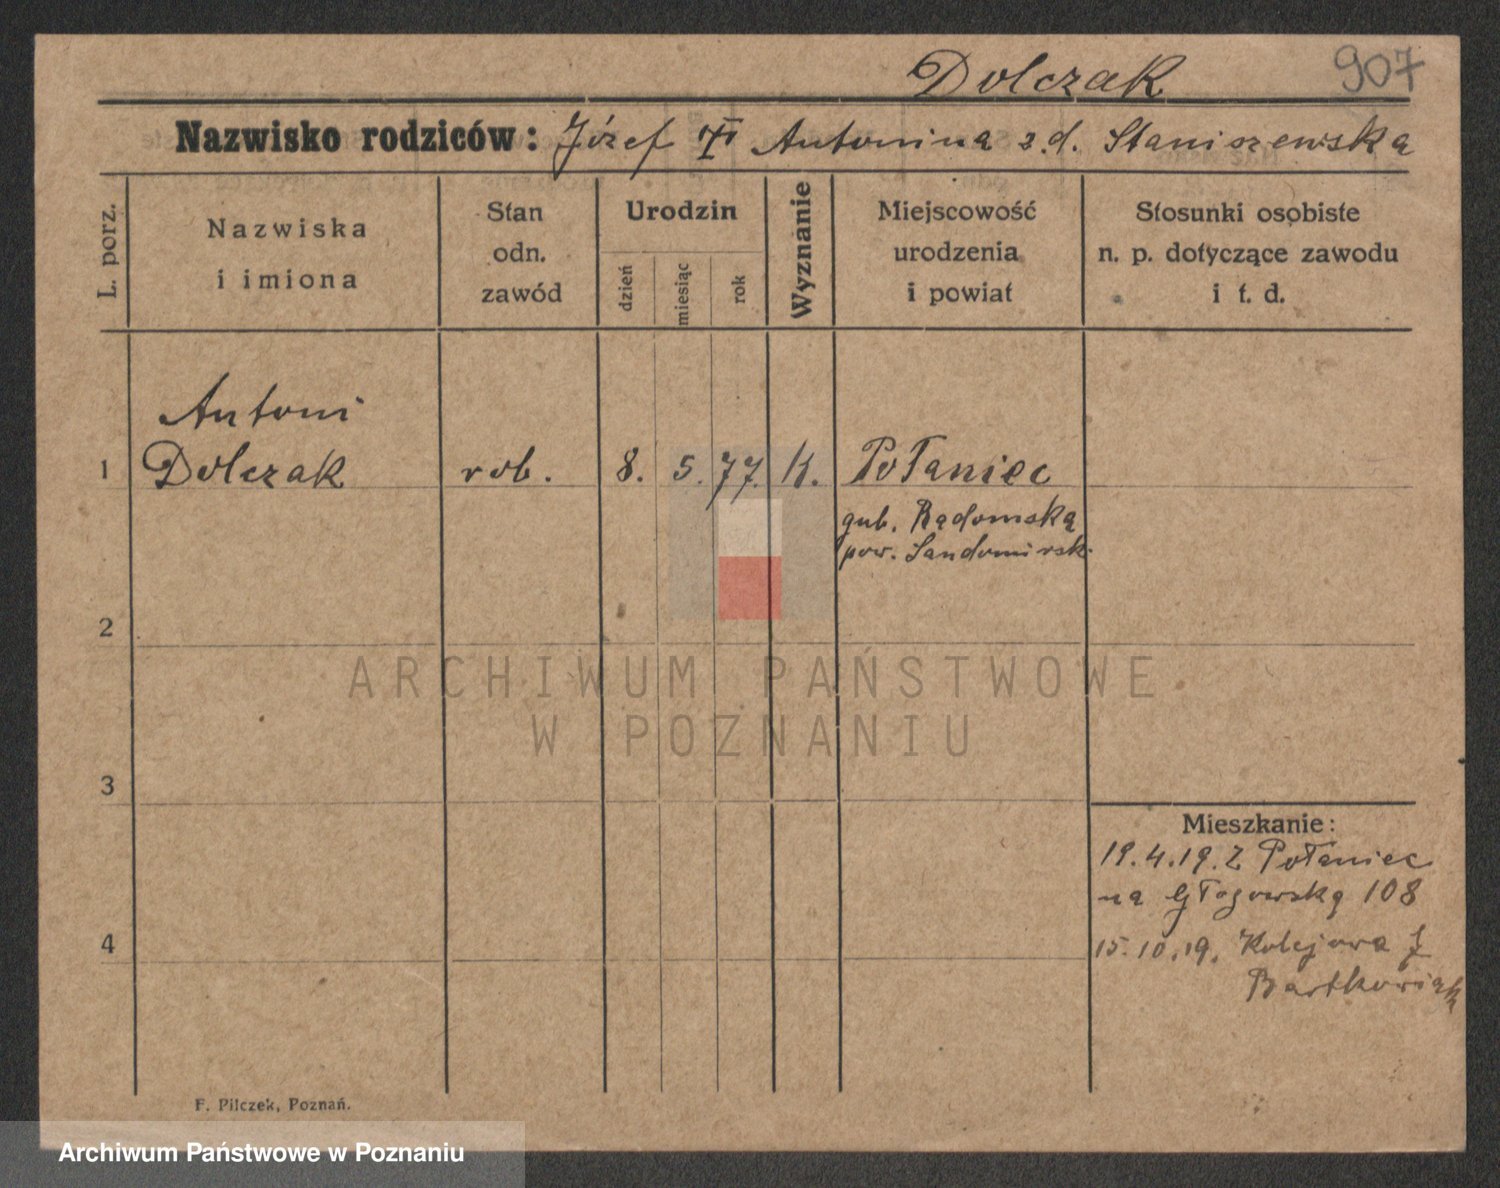 Dolczak 907
Nazwisko rodziców: Józef Antonina z.d. Staniszewska
L. porz.
Nazwiska
i imiona
Stan
odn.
zawód
Urodzin
dzień
miesiąc
rok
Wyznanie
Miejscowość
urodzenia
i powiat
Stosunki osobiste
n. p. dotyczące zawodu
i t. d.
Antoni
1 Dolczak rob. 8. 5. 77. K. Połaniec
gub. Radomską
pow. Sandomirsk.
2
ARCHIWUM PAŃSTWOWE
W POZNANIU
3
Mieszkanie:
19.4.19. Z Połaniec
na Głogowską 108
4
15.10.19. Kolejowa
Bartkowiak
F. Pilczek, Poznań.
Archiwum Państwowe w Poznaniu